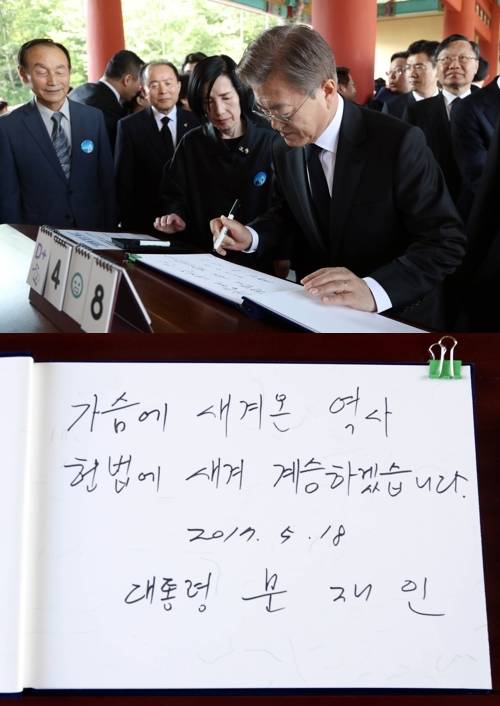 4
8
가슴에 새겨온 역사
헌법에 새겨 계승하겠습니다.
2017. 5. 18
대통령 문 재 인